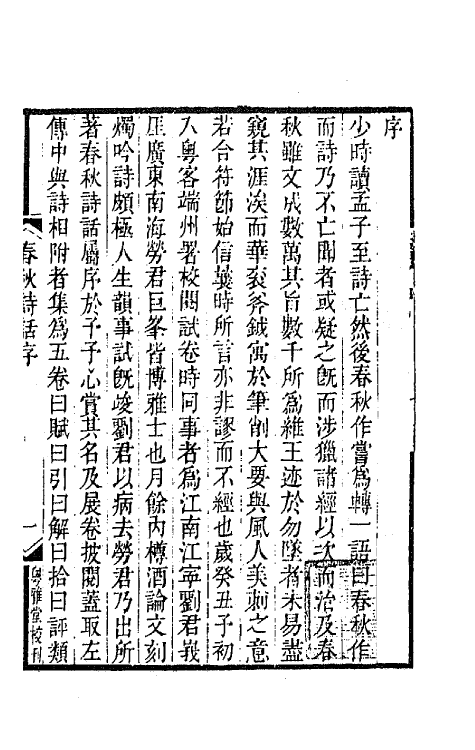 序
少時讀孟子至詩亡然後春秋作嘗爲轉一語曰春秋作
而詩乃不亡聞者或疑之旣而涉獵諸經以次而治及春
秋雖文成數萬其旨數千所爲維王迹於勿墜者未易盡
窺其涯涘而華衮斧鉞寓於筆削大要與風人美刺之意
若合符節始信曩時所言亦非謬而不經也歲癸丑予初
入粵客端州署校閱試卷時同事者爲江南江寧劉君莪
厓廣東南海勞君巨峯皆博雅士也月餘內樽酒論文刻
燭吟詩頗極人生韻事試旣竣劉君以病去勞君乃出所
著春秋詩話屬序於予予心賞其名及展卷披閱蓋取左
傳中與詩相附者集爲五卷曰賦曰引曰解曰拾曰評類
春秋詩話序
一
粵雅堂校刊